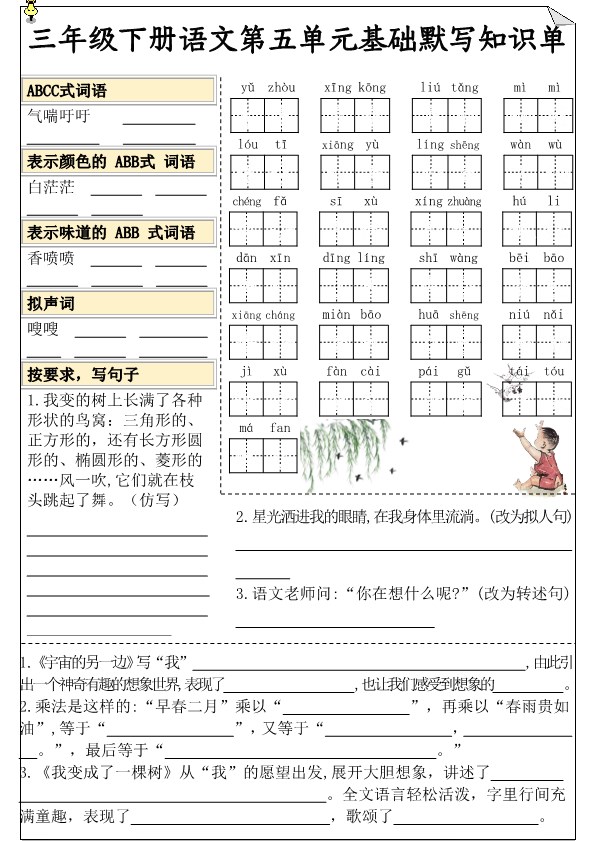 三年级下册语文第五单元基础默写知识单
ABCC式词语
气喘吁吁
表示颜色的 ABB式 词语
白茫茫
表示味道的 ABB 式词语
香喷喷
拟声词
嗖嗖
按要求，写句子
1.我变的树上长满了各种
形状的鸟窝：三角形的、
正方形的，还有长方形圆
形的、椭圆形的、菱形的
……风一吹,它们就在枝
头跳起了舞。（仿写）
yǔ zhòu xīng kōng liú tǎng mì mì
lóu tī xiāng yù líng shēng wàn wù
chéng fǎ sī xù xíng zhuàng hú li
dān xīn dīng líng shī wàng bēi bāo
xiāng cháng miàn bāo huā shēng niú nǎi
jì xù fàn cài pái gǔ tái tóu
má fan
2.星光洒进我的眼睛,在我身体里流淌。(改为拟人句)
3.语文老师问:“你在想什么呢?”(改为转述句)
1.《宇宙的另一边》写“我”,由此引
出一个神奇有趣的想象世界,表现了,也让我们感受到想象的。
2.乘法是这样的:“早春二月”乘以“”，再乘以“春雨贵如
油”,等于“”,又等于“，
。”，最后等于“。”
3.《我变成了一棵树》从“我”的愿望出发,展开大胆想象，讲述了
。全文语言轻松活泼，字里行间充
满童趣，表现了，歌颂了。